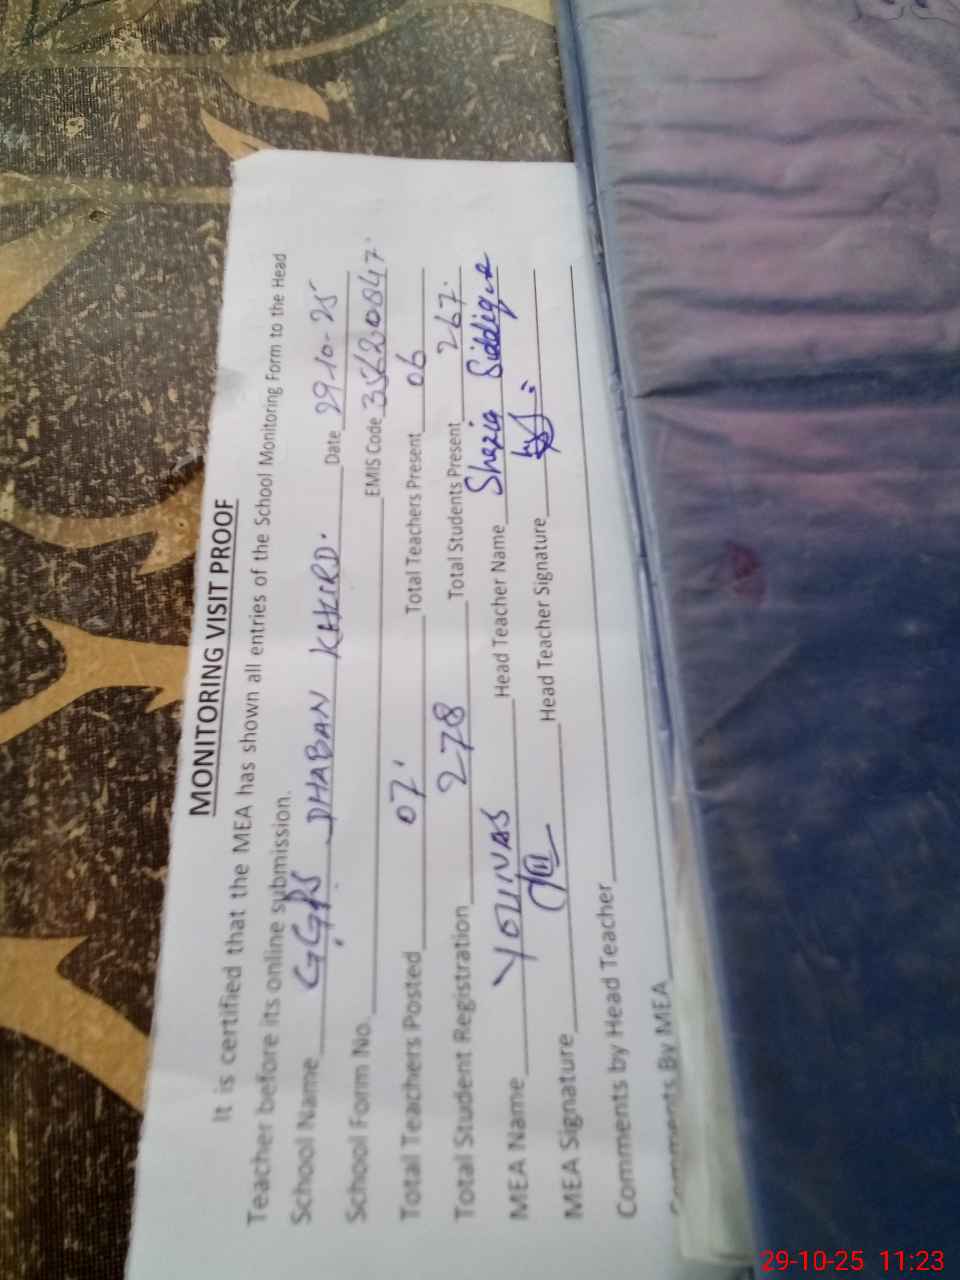 MONITORING VISIT PROOF
It is certified that the MEA has shown all entries of the School Monitoring Form to the Head
Teacher before its online submission.
School Name GGPS DHABAN KHURD. Date 29-10-25
School Form No. EMIS Code 35220847.
Total Teachers Posted 07 Total Teachers Present 06
Total Student Registration 278 Total Students Present 267.
MEA Name YOUNAS Head Teacher Name Shazia Siddique
MEA Signature Head Teacher Signature
Comments by Head Teacher
Comments By MEA
29-10-25 11:23